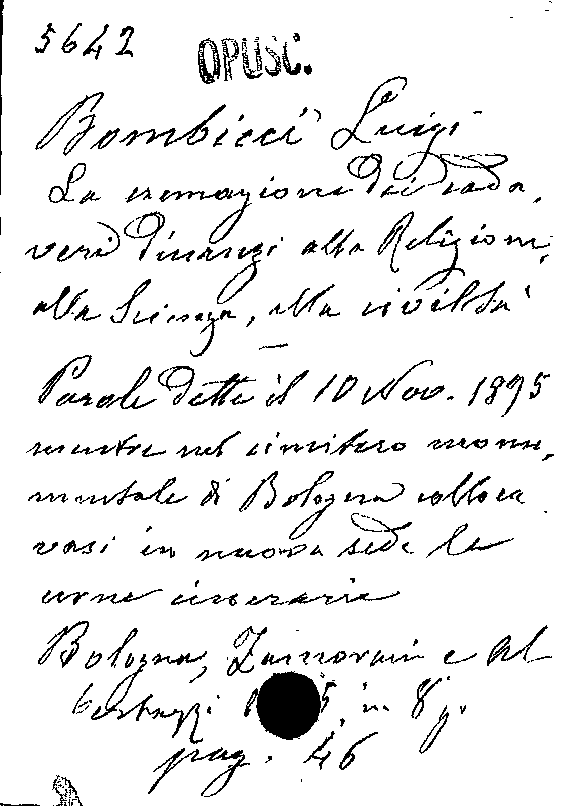 5642
OPUSC.
Bombicci Luigi
La cremazione dei cada,
veri dinanzi alla Religione,
alla Scienza, alla civiltà
Parole dette il 10 Nov. 1895
mentre nel cimitero monu,
mentale di Bologna colloca
vasi in nuova sede le
urne cinerarie
Bologna, Zamorani e Al
bertazzi 5, in 8° g.
pag. 46